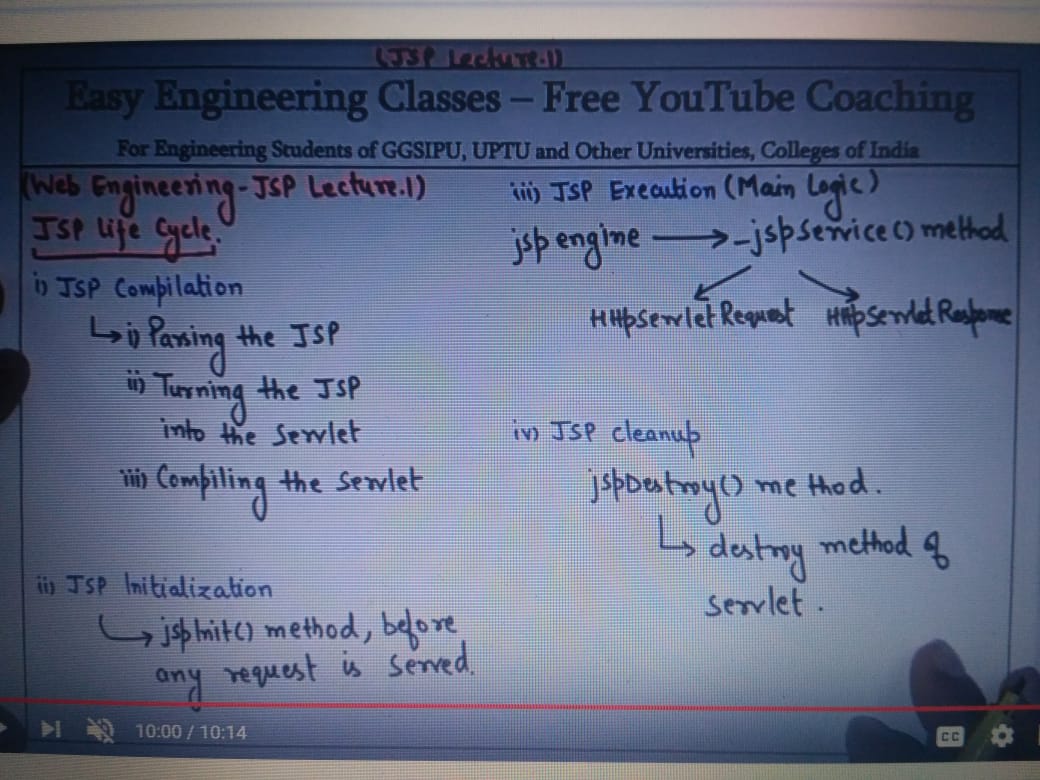 (JSP Lecture.1)
Easy Engineering Classes – Free YouTube Coaching
For Engineering Students of GGSIPU, UPTU and Other Universities, Colleges of India
(Web Engineering - JSP Lecture.1)
JSP Life Cycle.
i) JSP Compilation
i) Parsing the JSP
ii) Turning the JSP
into the Servlet
iii) Compiling the Servlet
ii) JSP Initialization
jspInit() method, before
any request is Served.
iii) JSP Execution (Main Logic)
jsp engine → _jspService() method
HttpServletRequest HttpServletResponse
iv) JSP cleanup
jspDestroy() method.
destroy method of
servlet.
10:00 / 10:14
CC